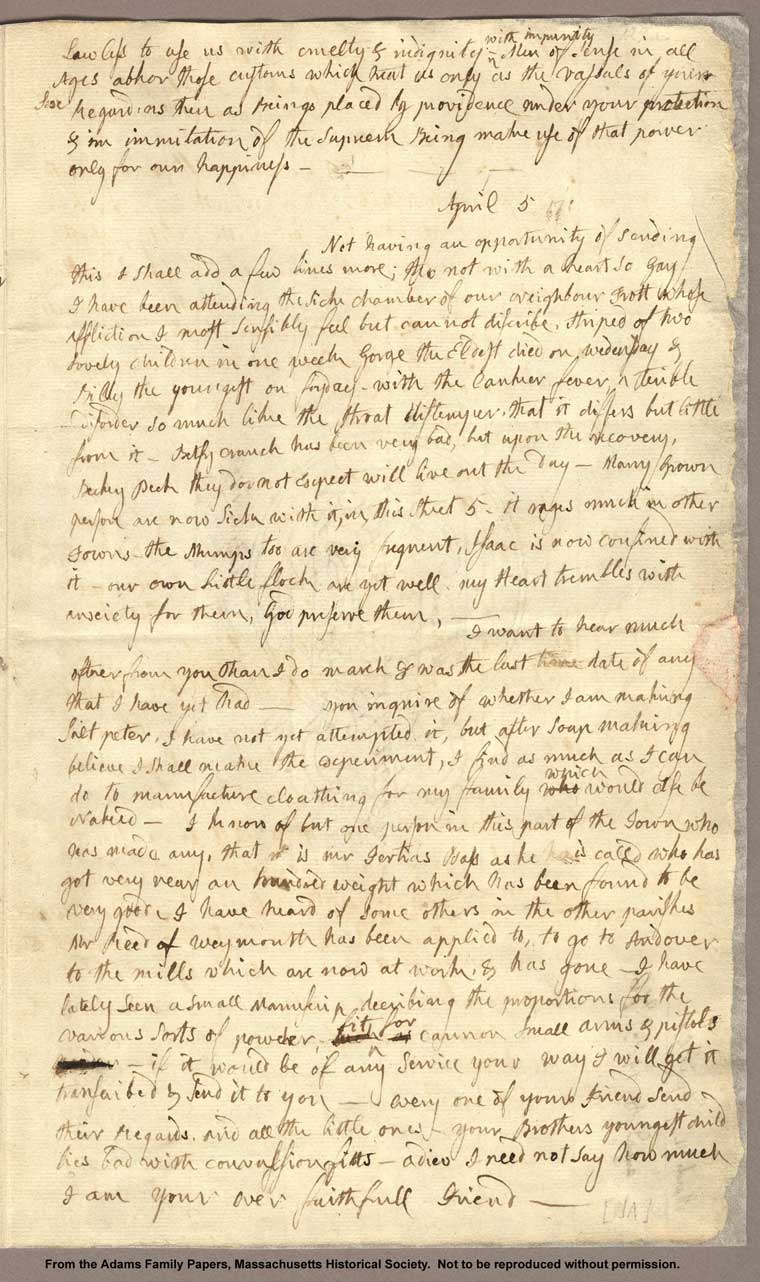 Lawless to use us with cruelty & indignity with impunity - Men of Sense in all
Ages abhor those customs which treat us only as the vassals of your
Sex Regard us then as Beings placed by providence under your protection
& in immitation of the Supreem Being make use of that power
only for our happiness -
April 5
Not having an opportunity of sending
this I shall add a few lines more; tho not with a heart so gay.
I have been attending the sick chamber of our neighbour Trott whose
affliction I most sensibly feel but cannot discribe, striped of two
lovely children in one week Gorge the Eldest died on wedensday &
Billy the youngest on fryday - with the Canker fever, a terible
disorder so much like the throat distemper, that it differs but little
from it - Betsy Cranch has been very bad, but upon the recovery,
Becky Peck they do not expect will live out the day - Many grown
person are now sick with it, in this street 5 - it rages much in other
Towns - the Mumps too are very frequent, Isaac is now confined with
it - our own little flock are yet well. my Heart trembles with
anxiety for them, God preserve them, -
I want to hear much
oftner from you than I do march 8 was the last date of any
that I have yet had - you inquire of whether I am making
Salt peter. I have not yet attempted it, but after Soap making
believe I shall make the experiment, I find as much as I can
do to manufacture cloathing for my family who which would else be
Naked - I know of but one person in this part of the Town who
has made any, that is mr Tertias Bass as he is calld who has
got very near an hundred weight which has been found to be
very good. I have heard of some others in the other parishes
Mr Reed of weymouth has been applied to, to go to Andover
to the mills which are now at work, & has gone - I have
lately seen a small Manuscrip decribing the proportions for the
various sorts of powder, fit for cannon small arms & pistols
- if it would be of any Service your way I will get it
transcribed & send it to you - every one of your Friend send
their Regards, and all the little ones - your Brothers youngest child
lies bad with convulsion fitts - adieu I need not say how much
I am your ever faithfull Friend -
[AA]
From the Adams Family Papers, Massachusetts Historical Society. Not to be reproduced without permission.